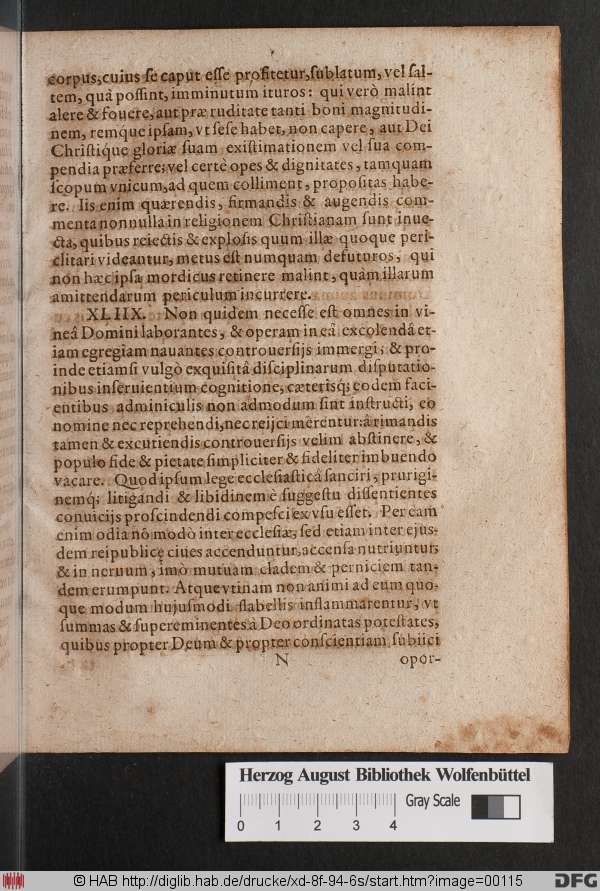 corpus, cuius se caput esse profitetur, sublatum, vel sal-
tem, quâ possint, imminutum ituros: qui verò malint
alere & fouere, aut præ ruditate tanti boni magnitudi-
nem, remque ipsam, vt sese habet, non capere, aut Dei
Christique gloriæ suam existimationem vel sua com-
pendia præferre; vel certè opes & dignitates, tamquam
scopum vnicum, ad quem colliment, propositas habe-
re. Iis enim quærendis, firmandis & augendis com-
menta nonnulla in religionem Christianam sunt inue-
cta, quibus reiectis & explosis quum illæ quoque peri-
clitari videantur, metus est numquam defuturos, qui
non hæc ipsa mordicus retinere malint, quàm illarum
amittendarum periculum incurrere.
XLIIX. Non quidem necesse est omnes in vi-
neâ Domini laborantes, & operam in eâ excolendâ et-
iam egregiam nauantes controuersijs immergi; & pro-
inde etiamsi vulgò exquisitâ disciplinarum disputatio-
nibus inseruientium cognitione, cæterisq; eodem faci-
entibus adminiculis non admodum sint instructi, eo
nomine nec reprehendi, nec reijci merentur: â rimandis
tamen & excutiendis controuersijs velim abstinere, &
populo fide & pietate simpliciter & fideliter imbuendo
vacare. Quod ipsum lege ecclesiasticâ sanciri, prurigi-
nemq; litigandi & libidinem è suggestu dissentientes
conuicijs proscindendi compesci ex vsu esset. Per eam
enim odia nō modò inter ecclesiæ, sed etiam inter ejus-
dem reipublicę ciues accenduntur, accensa nutriuntur;
& in neruum, imò mutuam cladem & perniciem tan-
dem erumpunt. Atque vtinam non animi ad eum quo-
que modum hujusmodi flabellis inflammarentur, vt
summas & supereminentes â Deo ordinatas potestates,
quibus propter Deum & propter conscientiam subiici
N opor-
Herzog August Bibliothek Wolfenbüttel
Gray Scale
0 1 2 3 4
© HAB http://diglib.hab.de/drucke/xd-8f-94-6s/start.htm?image=00115
DFG